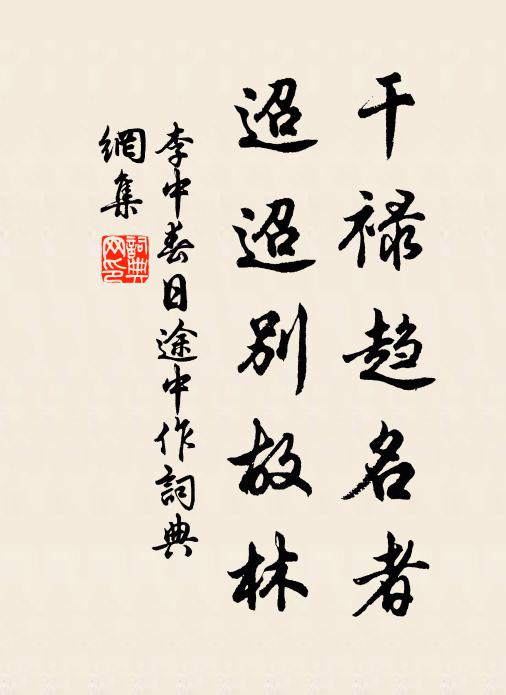 干禄趋名者
迢迢别故林
李中春日途中作詞典
網集
詞典網印